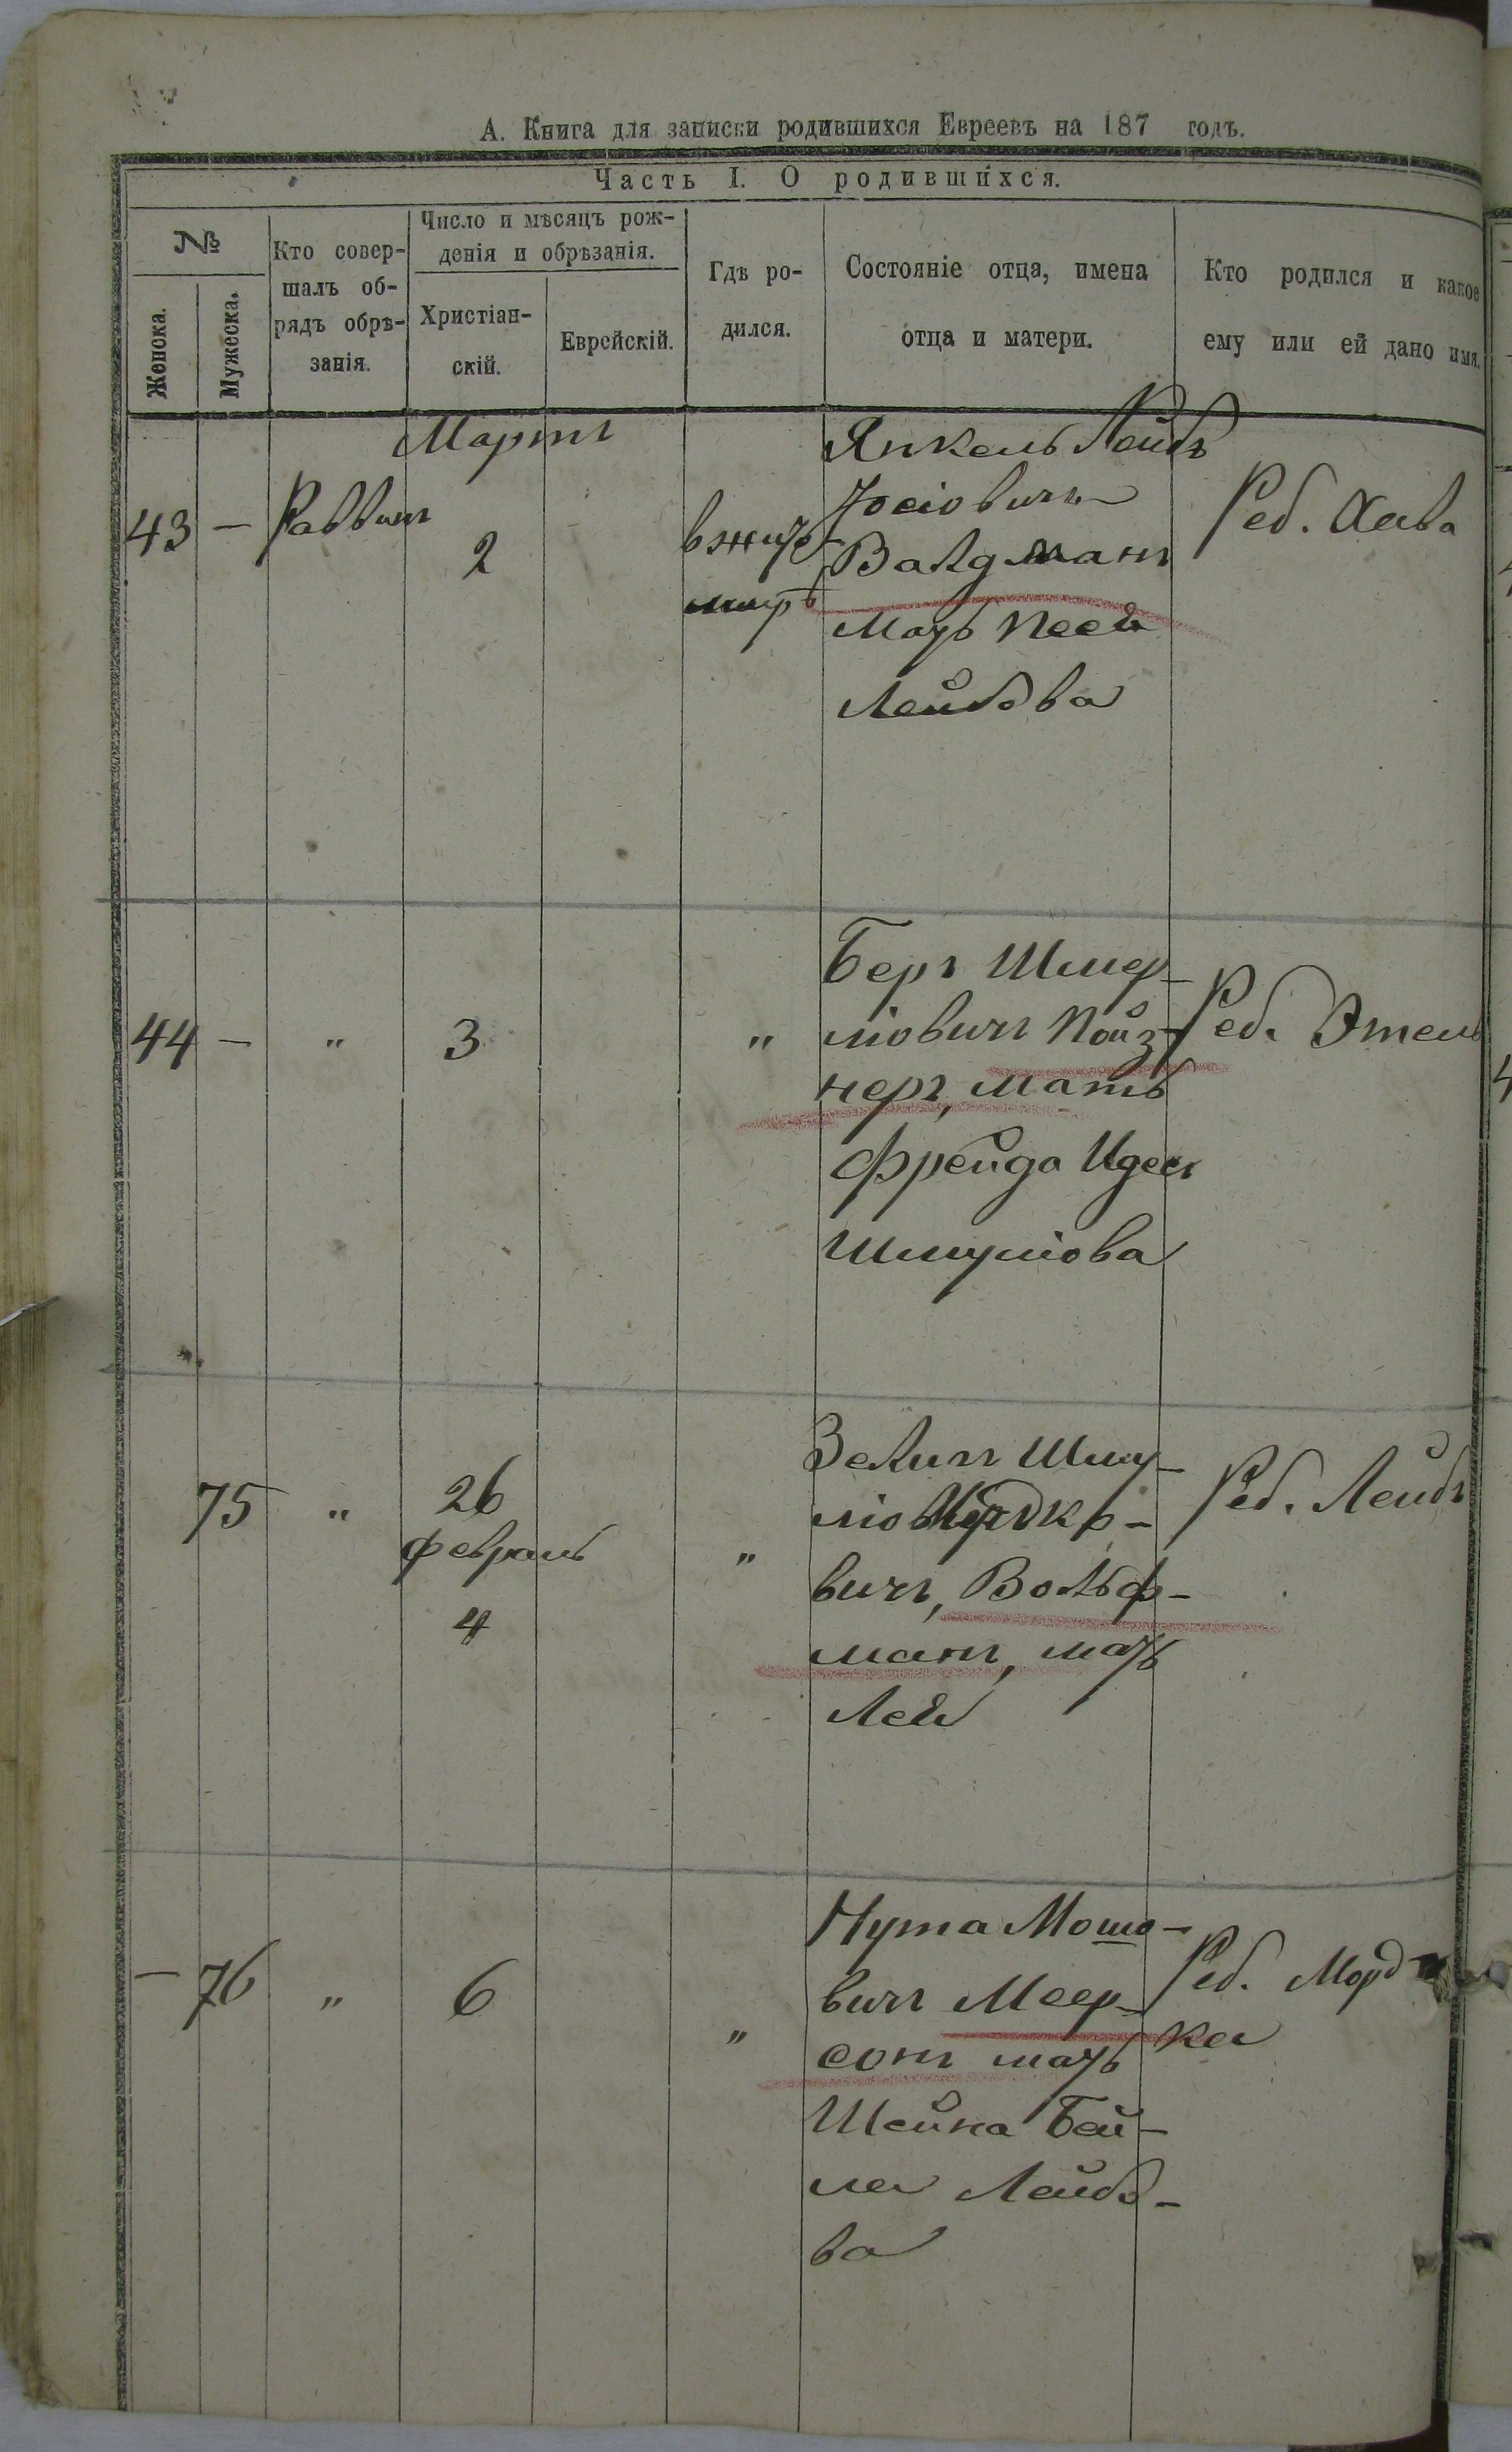 А. Книга для записки родившихся Евреевъ на 187 годъ.
Часть I. О родившихся.
№
Женска.
Мужеска.
Кто совер-
шалъ об-
рядъ обрѣ-
занія.
Число и мѣсяцъ рож-
денія и обрѣзанія.
Христіан-
скій.
Еврейскій.
Гдѣ ро-
дился.
Состояніе отца, имена
отца и матери.
Кто родился и какое
ему или ей дано имя.
Мартъ
43 — Раввинъ
2
в жито-
мирѣ
Янкель Лейбъ
Іосіовичъ
Валдманъ
мать Песя
Лейбова
Реб. Хава
44 — " 3 "
Беръ Шмер-
ліовичъ Пойз-
неръ, мать
Фрейда Идесъ
Шмуліова
Реб. Этель
75 "
26
февраль
4
"
Зелигъ Шму-
вічъ, Вольф-
манъ, мать
Лея
Реб. Лейбъ
— 76 " 6 "
Нута Мошо-
вичъ Меер-
сонъ мать
Шейна Бей-
ла Лейбо-
ва
Реб. Мордъ
ка